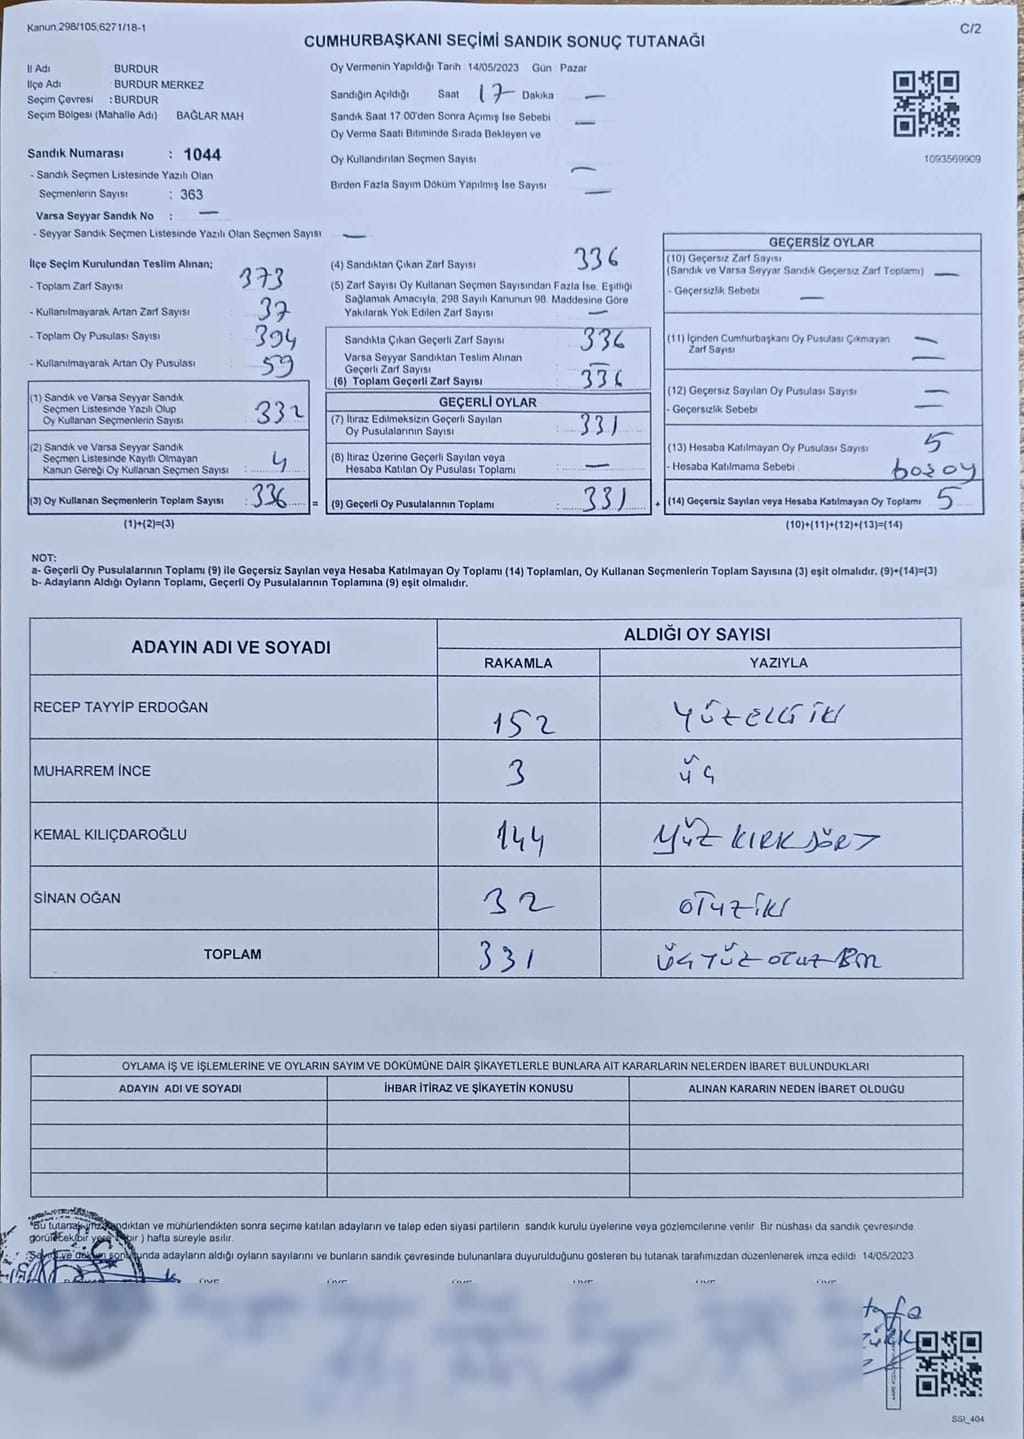 Kanun.298/105;6271/18-1
C/2
CUMHURBAŞKANI SEÇİMİ SANDIK SONUÇ TUTANAĞI
İl Adı BURDUR
İlçe Adı : BURDUR MERKEZ
Seçim Çevresi : BURDUR
Seçim Bölgesi (Mahalle Adı) BAĞLAR MAH
Sandık Numarası : 1044
- Sandık Seçmen Listesinde Yazılı Olan
Seçmenlerin Sayısı : 363
Varsa Seyyar Sandık No : —
- Seyyar Sandık Seçmen Listesinde Yazılı Olan Seçmen Sayısı —
Oy Vermenin Yapıldığı Tarih : 14/05/2023 Gün : Pazar
Sandığın Açıldığı Saat 17 Dakika —
Sandık Saat 17.00'den Sonra Açımış İse Sebebi —
Oy Verme Saati Bitiminde Sırada Bekleyen ve
Oy Kullandırılan Seçmen Sayısı —
Birden Fazla Sayım Döküm Yapılmış İse Sayısı —
1093569909
İlçe Seçim Kurulundan Teslim Alınan;
- Toplam Zarf Sayısı 373
- Kullanılmayarak Artan Zarf Sayısı 37
- Toplam Oy Pusulası Sayısı 394
- Kullanılmayarak Artan Oy Pusulası 59
(1) Sandık ve Varsa Seyyar Sandık
Seçmen Listesinde Yazılı Olup
Oy Kullanan Seçmenlerin Sayısı : 332
(2) Sandık ve Varsa Seyyar Sandık
Seçmen Listesinde Kayıtlı Olmayan
Kanun Gereği Oy Kullanan Seçmen Sayısı : 4
(3) Oy Kullanan Seçmenlerin Toplam Sayısı : 336 =
(1)+(2)=(3)
(4) Sandıktan Çıkan Zarf Sayısı 336
(5) Zarf Sayısı Oy Kullanan Seçmen Sayısından Fazla İse, Eşitliği
Sağlamak Amacıyla, 298 Sayılı Kanunun 98. Maddesine Göre
Yakılarak Yok Edilen Zarf Sayısı —
Sandıkta Çıkan Geçerli Zarf Sayısı 336
Varsa Seyyar Sandıktan Teslim Alınan
Geçerli Zarf Sayısı —
(6) Toplam Geçerli Zarf Sayısı 336
GEÇERLİ OYLAR
(7) İtiraz Edilmeksizin Geçerli Sayılan
Oy Pusulalarının Sayısı : 331
(8) İtiraz Üzerine Geçerli Sayılan veya
Hesaba Katılan Oy Pusulası Toplamı : —
(9) Geçerli Oy Pusulalarının Toplamı : 331 +
GEÇERSİZ OYLAR
(10) Geçersiz Zarf Sayısı
(Sandık ve Varsa Seyyar Sandık Geçersiz Zarf Toplamı) —
- Geçersizlik Sebebi —
(11) İçinden Cumhurbaşkanı Oy Pusulası Çıkmayan —
Zarf Sayısı —
(12) Geçersiz Sayılan Oy Pusulası Sayısı —
- Geçersizlik Sebebi —
(13) Hesaba Katılmayan Oy Pusulası Sayısı 5
- Hesaba Katılmama Sebebi boş oy
(14) Geçersiz Sayılan veya Hesaba Katılmayan Oy Toplamı 5
(10)+(11)+(12)+(13)=(14)
NOT:
a- Geçerli Oy Pusulalarının Toplamı (9) ile Geçersiz Sayılan veya Hesaba Katılmayan Oy Toplamı (14) Toplamları, Oy Kullanan Seçmenlerin Toplam Sayısına (3) eşit olmalıdır. (9)+(14)=(3)
b- Adayların Aldığı Oyların Toplamı, Geçerli Oy Pusulalarının Toplamına (9) eşit olmalıdır.
ADAYIN ADI VE SOYADI
ALDIĞI OY SAYISI
RAKAMLA YAZIYLA
RECEP TAYYİP ERDOĞAN 152 YÜZELLİ İKİ
MUHARREM İNCE 3 ÜÇ
KEMAL KILIÇDAROĞLU 144 YÜZ KIRK DÖRT
SİNAN OĞAN 32 OTUZİKİ
TOPLAM 331 ÜÇ YÜZ OTUZ BİR
OYLAMA İŞ VE İŞLEMLERİNE VE OYLARIN SAYIM VE DÖKÜMÜNE DAİR ŞİKAYETLERLE BUNLARA AİT KARARLARIN NELERDEN İBARET BULUNDUKLARI
ADAYIN ADI VE SOYADI İHBAR İTİRAZ VE ŞİKAYETİN KONUSU ALINAN KARARIN NEDEN İBARET OLDUĞU
*Bu tutanak ve mühürlendikten sonra seçime katılan adayların ve talep eden siyasi partilerin sandık kurulu üyelerine veya gözlemcilerine verilir. Bir nüshası da sandık çevresinde
görülecek bir yere (bir) hafta süreyle asılır.
adayların aldığı oyların sayılarını ve bunların sandık çevresinde bulunanlara duyurulduğunu gösteren bu tutanak tarafımızdan düzenlenerek imza edildi. 14/05/2023
ÜYE ÜYE ÜYE ÜYE ÜYE ÜYE
SSI_404